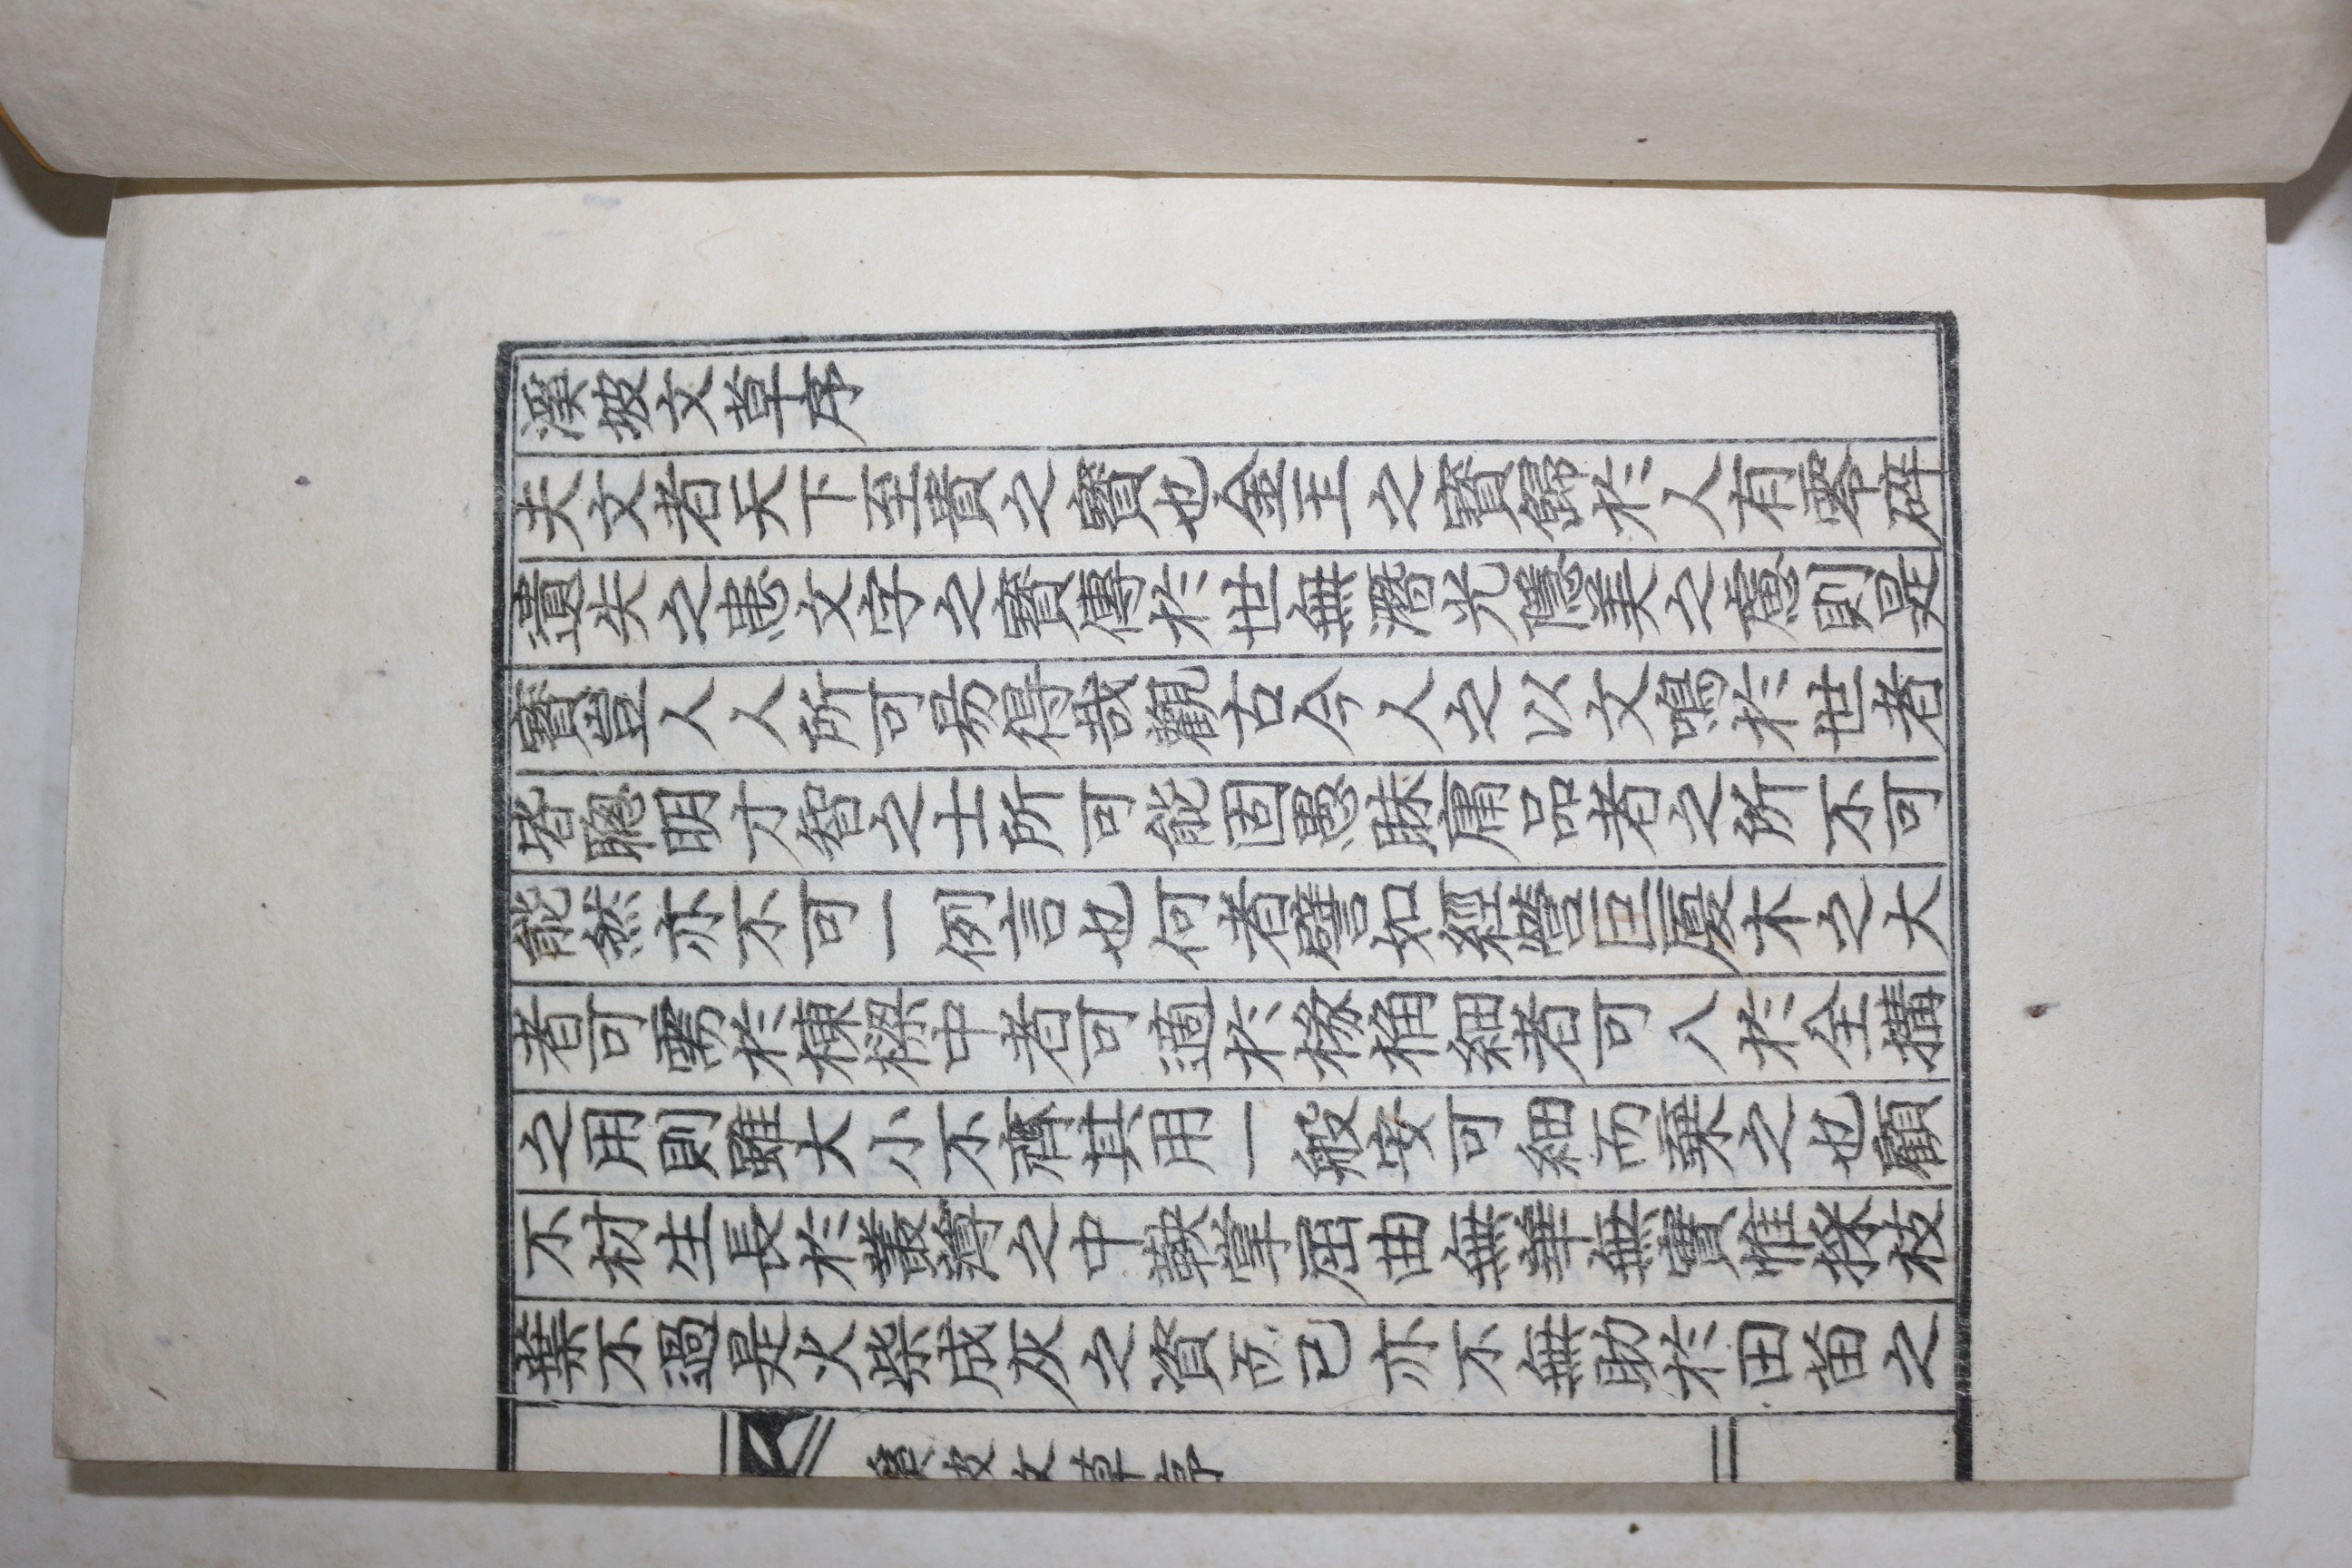 溪坡文草序
夫文者天下至貴之寶也金玉之寶歸於人有零碎
遺失之患文字之寶傳於世無潛光隱美之慮則是
寶豈人人所可易得哉觀古今人之以文鳴於世者
皆聰明才智之士所可能固愚昧庸品者之所不可
能然亦不可一例言也何者譬如經營巨厦木之大
者可需於棟樑中者可適於椽桷細者可八於全搆
之用則雖大小不齊其用一般安可細而棄之也顧
不材生長於叢薄之中鞅掌屈曲無華無實惟採枝
葉不過是火柴成灰之資而已亦不無助於田苗之
溪坡文草序